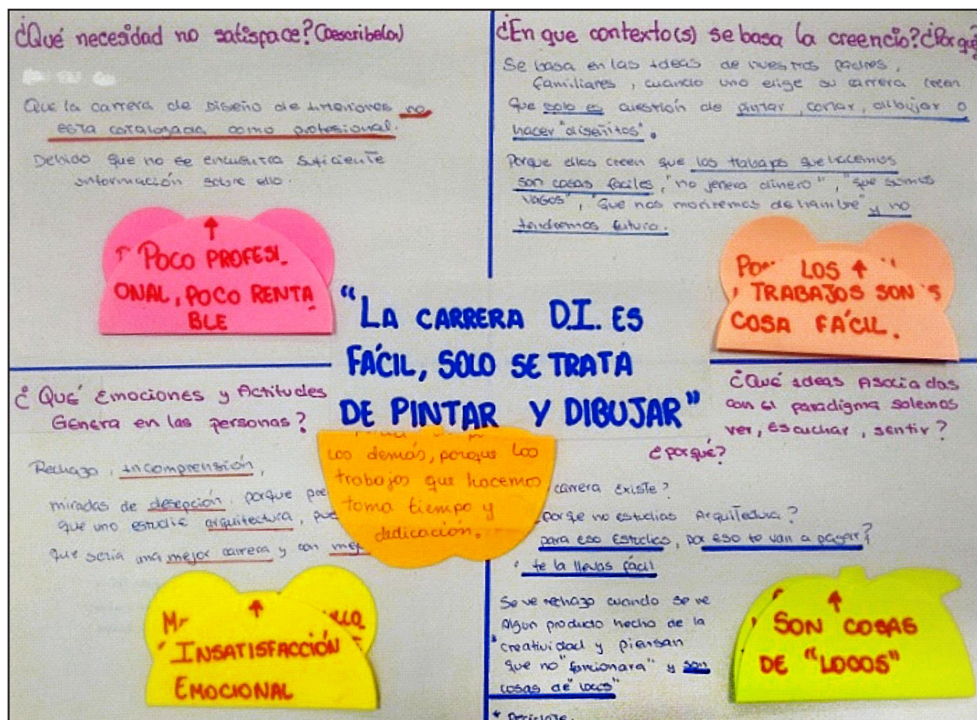 ¿Qué necesidad no satisface? (Describelo)
Que la carrera de Diseño de Interiores no
esta catalogada como profesional.
Debido que no se encuentra suficiente
información sobre ello.
POCO PROFESI_
ONAL, POCO RENTA
BLE
¿En que contexto(s) se basa la creencio? ¿Por qué?
Se basa en las ideas de nuestros padres,
familiares, cuando uno elige su carrera creen
que solo es cuestión de pintar, cortar, dibujar o
hacer "diseñitos".
Porque ellos creen que los trabajos que hacemos
son cosas faciles, "no jenera dinero", "que somos
vagos", "que nos moriremos de hambre" y no
tendremos futuro.
LOS
TRABAJOS SON
COSA FÁCIL.
"LA CARRERA D.I. ES
FÁCIL, SOLO SE TRATA
DE PINTAR Y DIBUJAR"
los demás, porque los
trabajos que hacemos
toma tiempo y
dedicación.
¿Qué Emociones y Actitudes
Genera en las personas?
Rechazo, incomprensión,
miradas de desepción, porque
que uno estudie arquitectura,
que seria una mejor carrera y con
INSATISFACCIÓN
EMOCIONAL
¿Qué ideas Asociadas
con el paradigma solemos
ver, escuchar, sentir?
¿porqué?
carrera existe?
porqe no estudias Arquitectura?
para eso Estudias, por eso te van a pagar?
te la llevas fácil
Se ve rechazo cuando se ve
Algun producto hecho de la
creatividad y piensan
que no "funcionara" y son
cosas de "locos"
SON COSAS
DE "LOCOS"